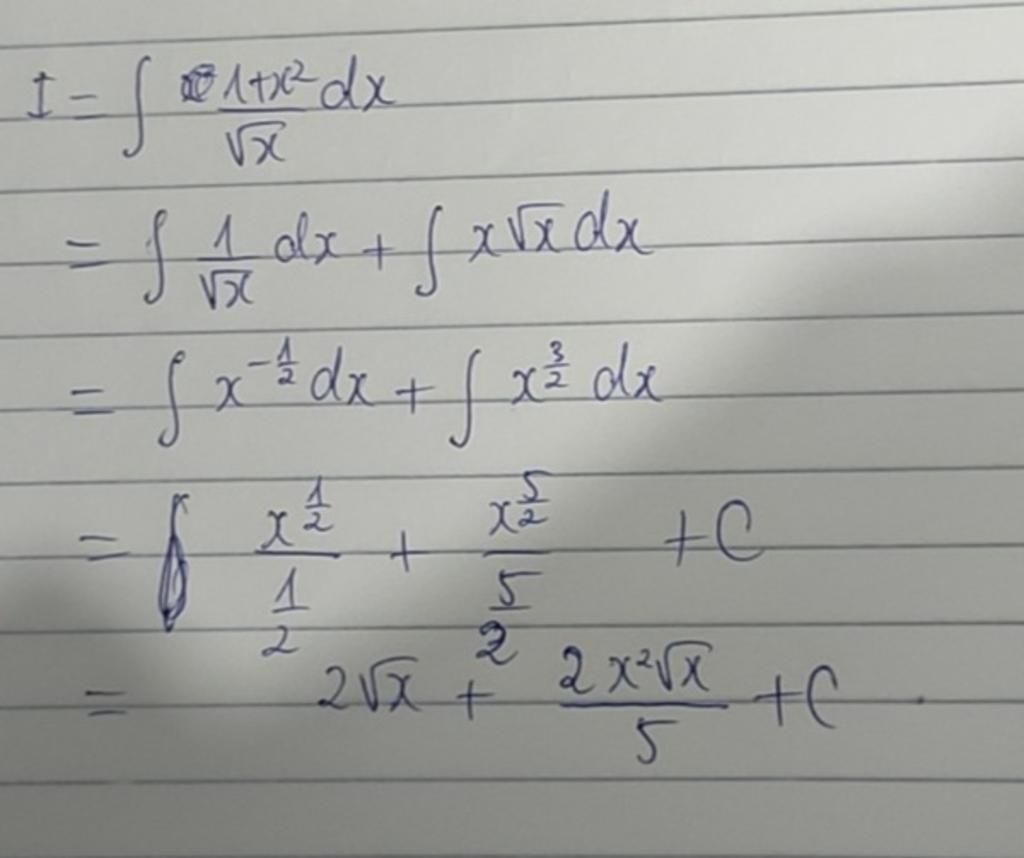 I = ∫ (1+x²)/√x dx
= ∫ 1/√x dx + ∫ x√x dx
= ∫ x^(-1/2) dx + ∫ x^(3/2) dx
= x^(1/2)/(1/2) + x^(5/2)/(5/2) + C
= 2√x + 2x²√x/5 + C